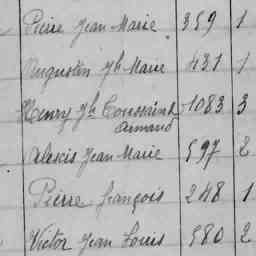 Pierre Jean Marie 359 1
Augustin Jh Marie 431 1
Henry Jh Toussaint 1083 3
Armand
Alexis Jean Marie 597 2
Pierre François 248 1
Victor Jean Louis 580 2